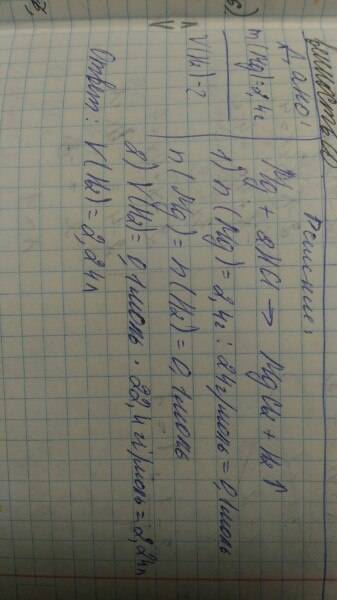 б)
Дано:
m(Mg)=2,4г
V(H₂)-?
Решение:
Mg + 2HCl → MgCl₂ + H₂↑
1) n(Mg)=2,4г : 24г/моль = 0,1моль
n(Mg)=n(H₂)=0,1моль
2) V(H₂)=0,1моль · 22,4г/моль=2,24л
Ответ: V(H₂)=2,24л